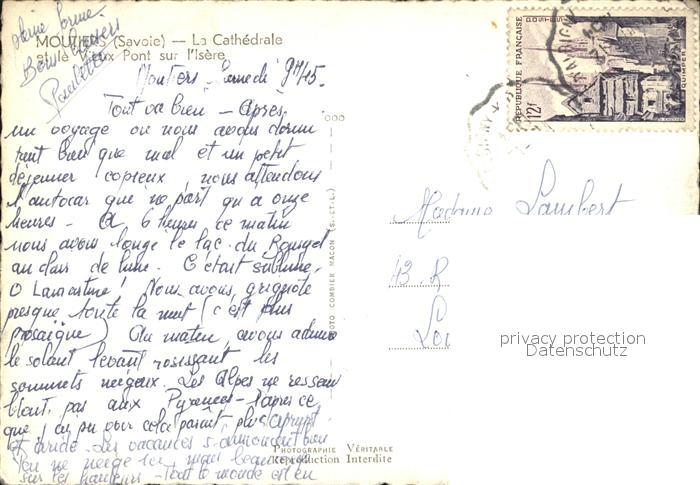 MOUTIERS (Savoie) — La Cathédrale
et le Vieux Pont sur l'Isère
Moutiers, samedi 9h15.
Tout va bien — Après
un voyage ou nous avons dormi
tant bien que mal et un petit
déjeuner copieux, nous attendons
l'autocar que ne part qu'a onze
heures — A 6 heures ce matin
nous avons longé le lac du Bourget
au clair de lune. C'était sublime.
O Lamartine! Nous avons grignoté
presque toute la nuit (c'est plus
prosaïque) Au matin, avons admiré
le soleil levant rosissant les
sommets neigeux. Les Alpes ne ressem
blent pas aux Pyrénées — d'après ce
que j'ai pu voir cela parait plus abrupt
et aride. Les vacances s'annoncent bien
On ne neige ici mais beaucoup
sur les hauteurs — Tout le monde est en
pleine forme
Bons baisers
Paulette
PHOTO COMBIER MACON (S.-ET-L.)
PHOTOGRAPHIE VÉRITABLE
Reproduction Interdite
RÉPUBLIQUE FRANÇAISE
POSTES
12F
QUIMPER
Madame Lambert
43 R
privacy protection
Datenschutz